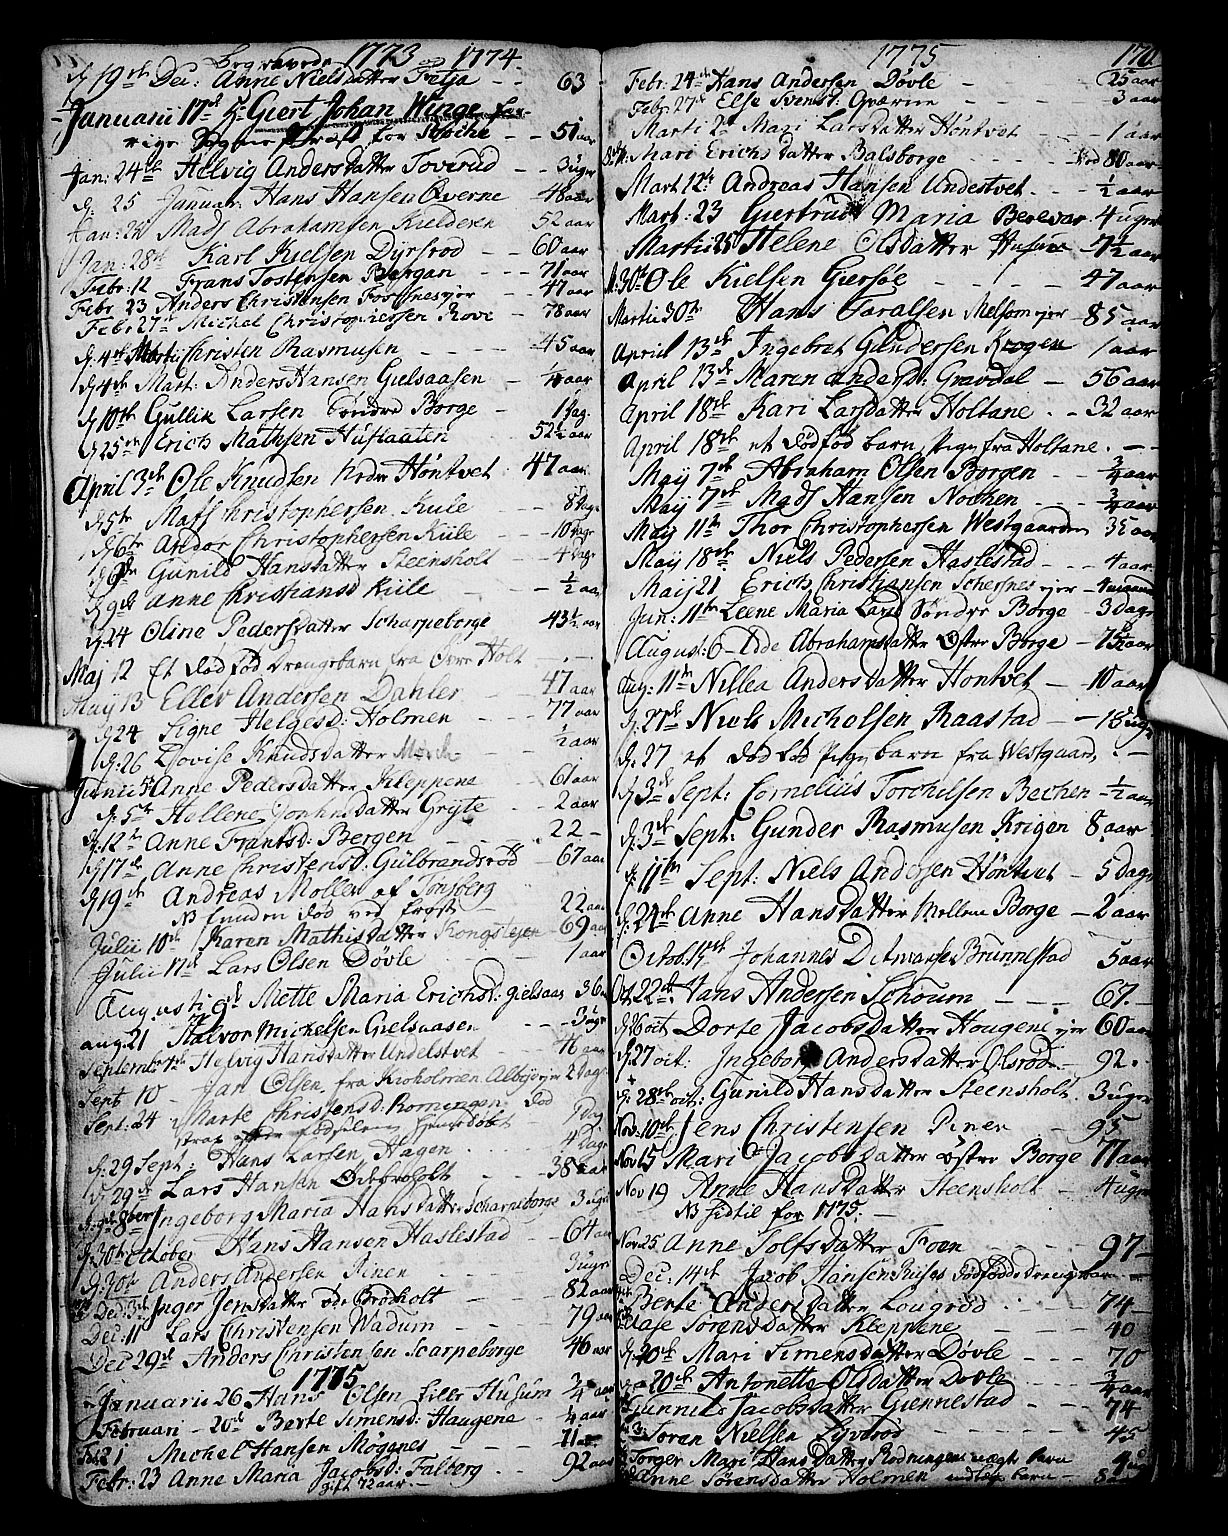 Begravede 1773 og 1774
d. 19de Dec: Anne Nielsdatter Fetja - - 63
Januarii 17de Hr Giert Johan Winge for-
rige Sogne Præst for Støche - - 51 aar
Jan: 24de Helvig Andersdatter Toverud - - 3 uger
d. 25 Januar: Hans Hansen Qverne - 48 aar
Jan: 28 Mads Abrahamsen Kielderen 52 aar
Jan: 28de Karl Kielsen Dyrsrod - - - 60 aar
Febr: 12 Frans Tostensen Bergan - - - 71 aar
Febr. 23 Anders Christensen - - 47 aar
Febr: 27de Michel Christophersen Rove - - 78 aar
d. 4de Martii Christen Rasmusen - - - - 45 aar
d. 4de Mart: Anders Hansen Gielsaasen - 1/4 aar
d. 10de Gullik Larsen Søndre Borge - - 1 dag.
d. 25de Erich Mathsen Huflaaten - - 52 1/2 aar
April 3de Ole Knudsen Nedre Höntvet : 47 aar
d. 5te Mats Christophersen Kiile - - 8 dage
d. 6te Andor Christophersen Kiile - - - 10 dage
Gunild Hansdatter Steensholt - 4 dage
d. 9de Anne Christiansd Kiile - - 1/2 aar
d. 24 Oline Pedersdatter Scharpeborge - 43 1/2 aar
Maj 12 Et dødfød drengebarn fra Øvre Holt - . -
May 13 Ellev Andersen Dahler - - - 47 aar
d. 24 Signe Helgesd: Holmen - - - 77 aar
d. 26 Lovise Knudsdatter - - 1/2 aar
Junii Anne Pedersdatter Kleppene - 61 aar
d. 5te Hellene datter Gryte - - 2 aar
d. 12te Anne Frantsd: Bergen - - - 22 -
d. 17de Anne Christensd: Gulbrandsrød - 67 aar
d. 19de Andreas Moller af Tønsberg
NB funden død ved frost - 22 aar
Julii 10de Karen Mathisdatter Kongstejen - 69 aar
Julii 17de Lars Olsen Døvle - 1 aar
Augusti 9de Mette Maria Erichsd: Gielsaas 36
aug. 21 Halvor Michelsen Gielsaasen - - - 3 uger
September Helvig Hansdatter Undelstvet - - - 46 aar
Sept 10 - Jan Olsen fra Kroholmen - 2 dage
Sept: 24 Marte Christensd: Romingen. død
strax efter fødselen hjemedøbt - 1 dag
d. 29 Sept: Hans Larsen Hagen . . . . 4 dage
d. 29de Lars Hansen - 38 aar
8ber Ingeborg Maria Hansdatter Scharpeborge 3 uger
d. 30te October Hans Hansen Haslestad - - 64 aar
d. 30te Anders Andersen Pinen - - - 3 uger
Dec: 3de Inger Jensdatter - - 82 aar
Dec: 11 Lars Christensen Wadum - - - - 79 aar
Dec 29de Anders Christensen Scarpeborge 46 aar
1775
Januarii 26 Hans Olsen Lille Husum 3/4 aar
Februarii - 20de Berte Simensd: Haugene - 1/4 aar
Michel Hansen Møggnes - - - - 71 -
Febr: 23 Anne Maria Jacobsd: Falberg . - - 92 aar
gift 72 aar. -
1775
Febr: 24de Hans Andersen Døvle - - 25 aar
Febr: 27de Else Svensd: Qværne - - - - 3 aar
Marti 2de Mari Larsdatter Höntvet - - - - 1 aar
Mari Erichsdatter Balsborge - - - - 80 aar
Mart: 12te Andreas Hansen Undestvet. - - - 1/2 aar
Mart: 23 Giertrud Maria 4 uger
Martii 25 Helene Olsdatter Husum - 7 1/2 aar
30te Ole Kielsen Giersøe - - - - 47 aar
Martii 30te Hans Taralsen Melsom ejer - 85 aar
April 13de Ingebret Gundersen Krogen 1 aar
April 13de Maren anders: Gravdal - 56 aar
April 18de Kari Larsdatter Holtane . - 32 aar
April 18de et dødfød barn, Pige fra Holtane. - -
May 7de Abraham Olsen Borgen - - 3/4 aar
May 7de Mads Hansen Nochen - - - 3/4 aar
May 11te Thor Christophersen Westgaarden 35 aar
May 18de Niels Pedersen Haslestad - - - 4 aar
Maij 21 Erich Christiansen ejer -
Jun: 11te Leene Maria Larsd Søndre Borge - 3 dage
August: 6 - Edde Abrahamsdatter Øster Borge - 75 1/2 aar
Aug: 11te Nillea Andersdatter Hontvet - - 10 aar
d. 27de Niels Micholsen Raastad - - 18 uger
d. 27 et dødfød Pigebarn fra Westgaard. . -
d. 3de Sept: Cornelius Torchilsen Bechen - 1/2 aar
d. 3de Sept: Gunder Rasmusen Krigen 8 aar
d. 11te Sept: Niels Andersen Höntvet - 5 dage
d. 24de Anne Hansdatter Mellem Borge - 2 aar
Octob. 15de Johannes Ditmarsen Brunnelstad 5 aar
Oct. 22de Hans Andersen Schoum - - - - 67. -
d. 26 oct Dorte Jacobsdatter Hougene ejer 60 aar
d. 27 oct. Ingeborg Andersdatter Olsrød - 92.
d. 28de oct: Gunild Hansdatter Steensholt . 3 uger
Nov: 10de Jens Christensen Pinen - 95
Nov 15 Mari Jacobsdatter Østre Borge 77 aar
Nov 19 Anne Hansdatter Steensholt - 4 uger
NB hidtil for 1775. -
Nov: 25 Anne Tolfsdatter Foen - - - 97 -
Dec: 14de Jacob Hansen dødfødde drengebarn -
Berte Andersdatter Lougrød . - - - 74 -
Aase Sørensdatter Kleppene - - - - 40
d. 20de Mari Simensdatter Døvle - - - 70
d. 20de Antonette Olsdatter Døvle - - - 3/4 aar
Gunnild Jacobsdatter Giennestad - - 74
Søren Nielsen Lyverød - - - - 45
Torger Mari Hansdatter Rodningen uægte barn
Anne Sørensdatter Holmen barn -